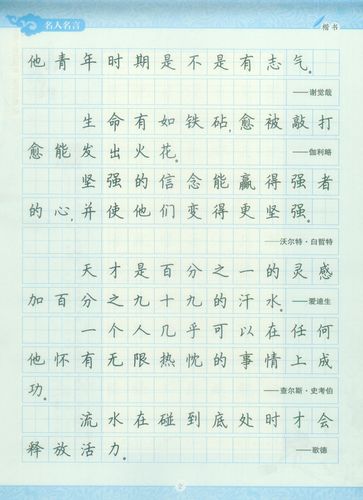 名人名言
楷书
他青年时期是不是有志气。
——谢觉哉
生命有如铁砧,愈被敲打
愈能发出火花。 ——伽利略
坚强的信念能赢得强者
的心,并使他们变得更坚强。
——沃尔特·白哲特
天才是百分之一的灵感
加百分之九十九的汗水。——爱迪生
一个人几乎可以在任何
他怀有无限热忱的事情上成
功。 ——查尔斯·史考伯
流水在碰到底处时才会
释放活力。 ——歌德
2